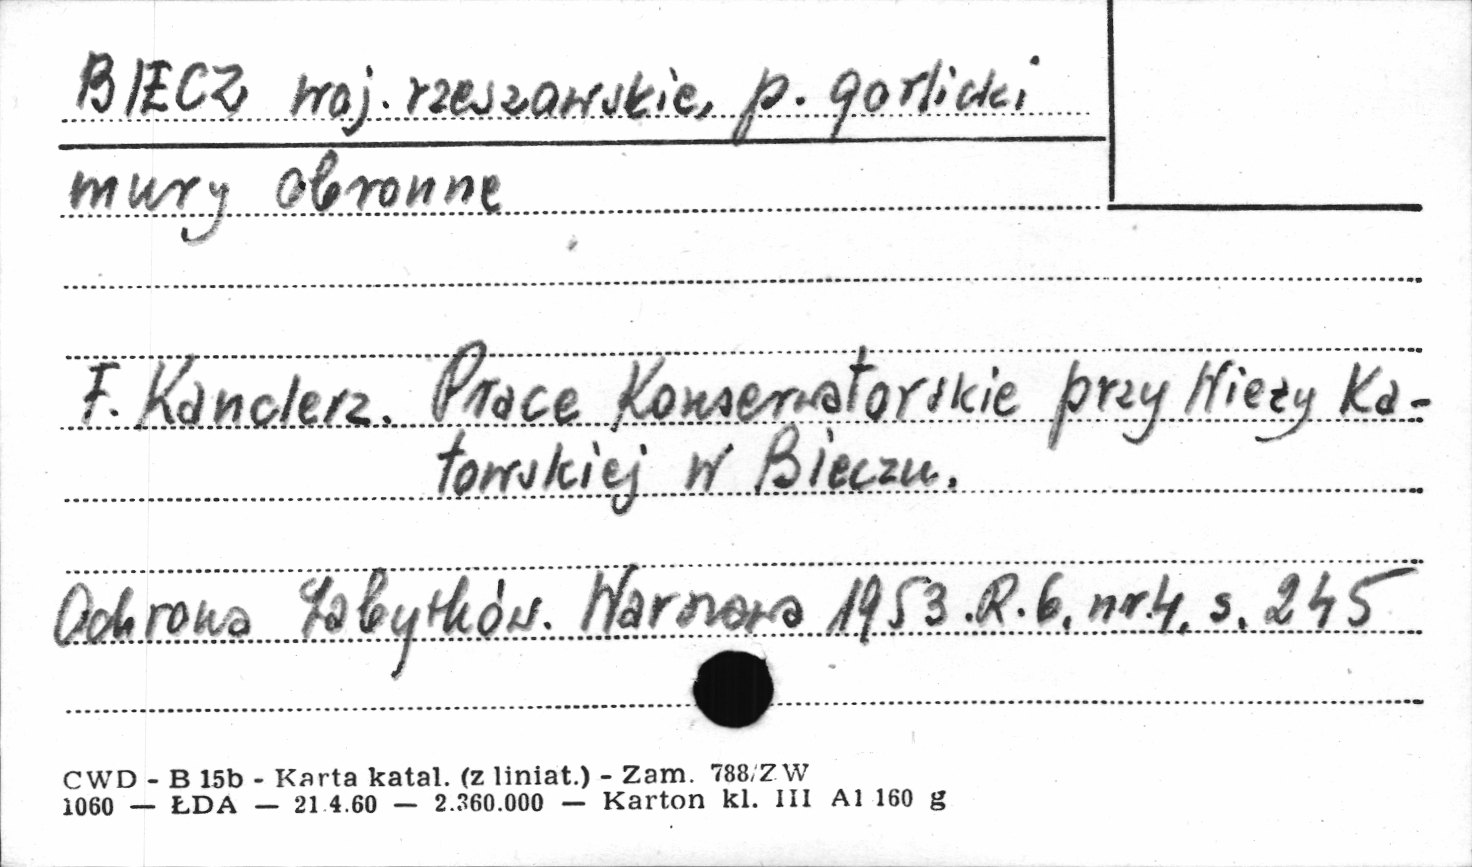 BIECZ woj. rzeszowskie, p. gorlicki
mury obronne
F. Kanclerz. Prace Konserwatorskie przy Wieży Ka-
towskiej w Bieczu.
Ochrona Zabytków. Warszawa 1953.R.6, nr.4, s. 245
CWD - B 15b - Karta katal. (z liniat.) - Zam. 788/ZW
1060 — ŁDA — 21.4.60 — 2.360.000 — Karton kl. III A1 160 g